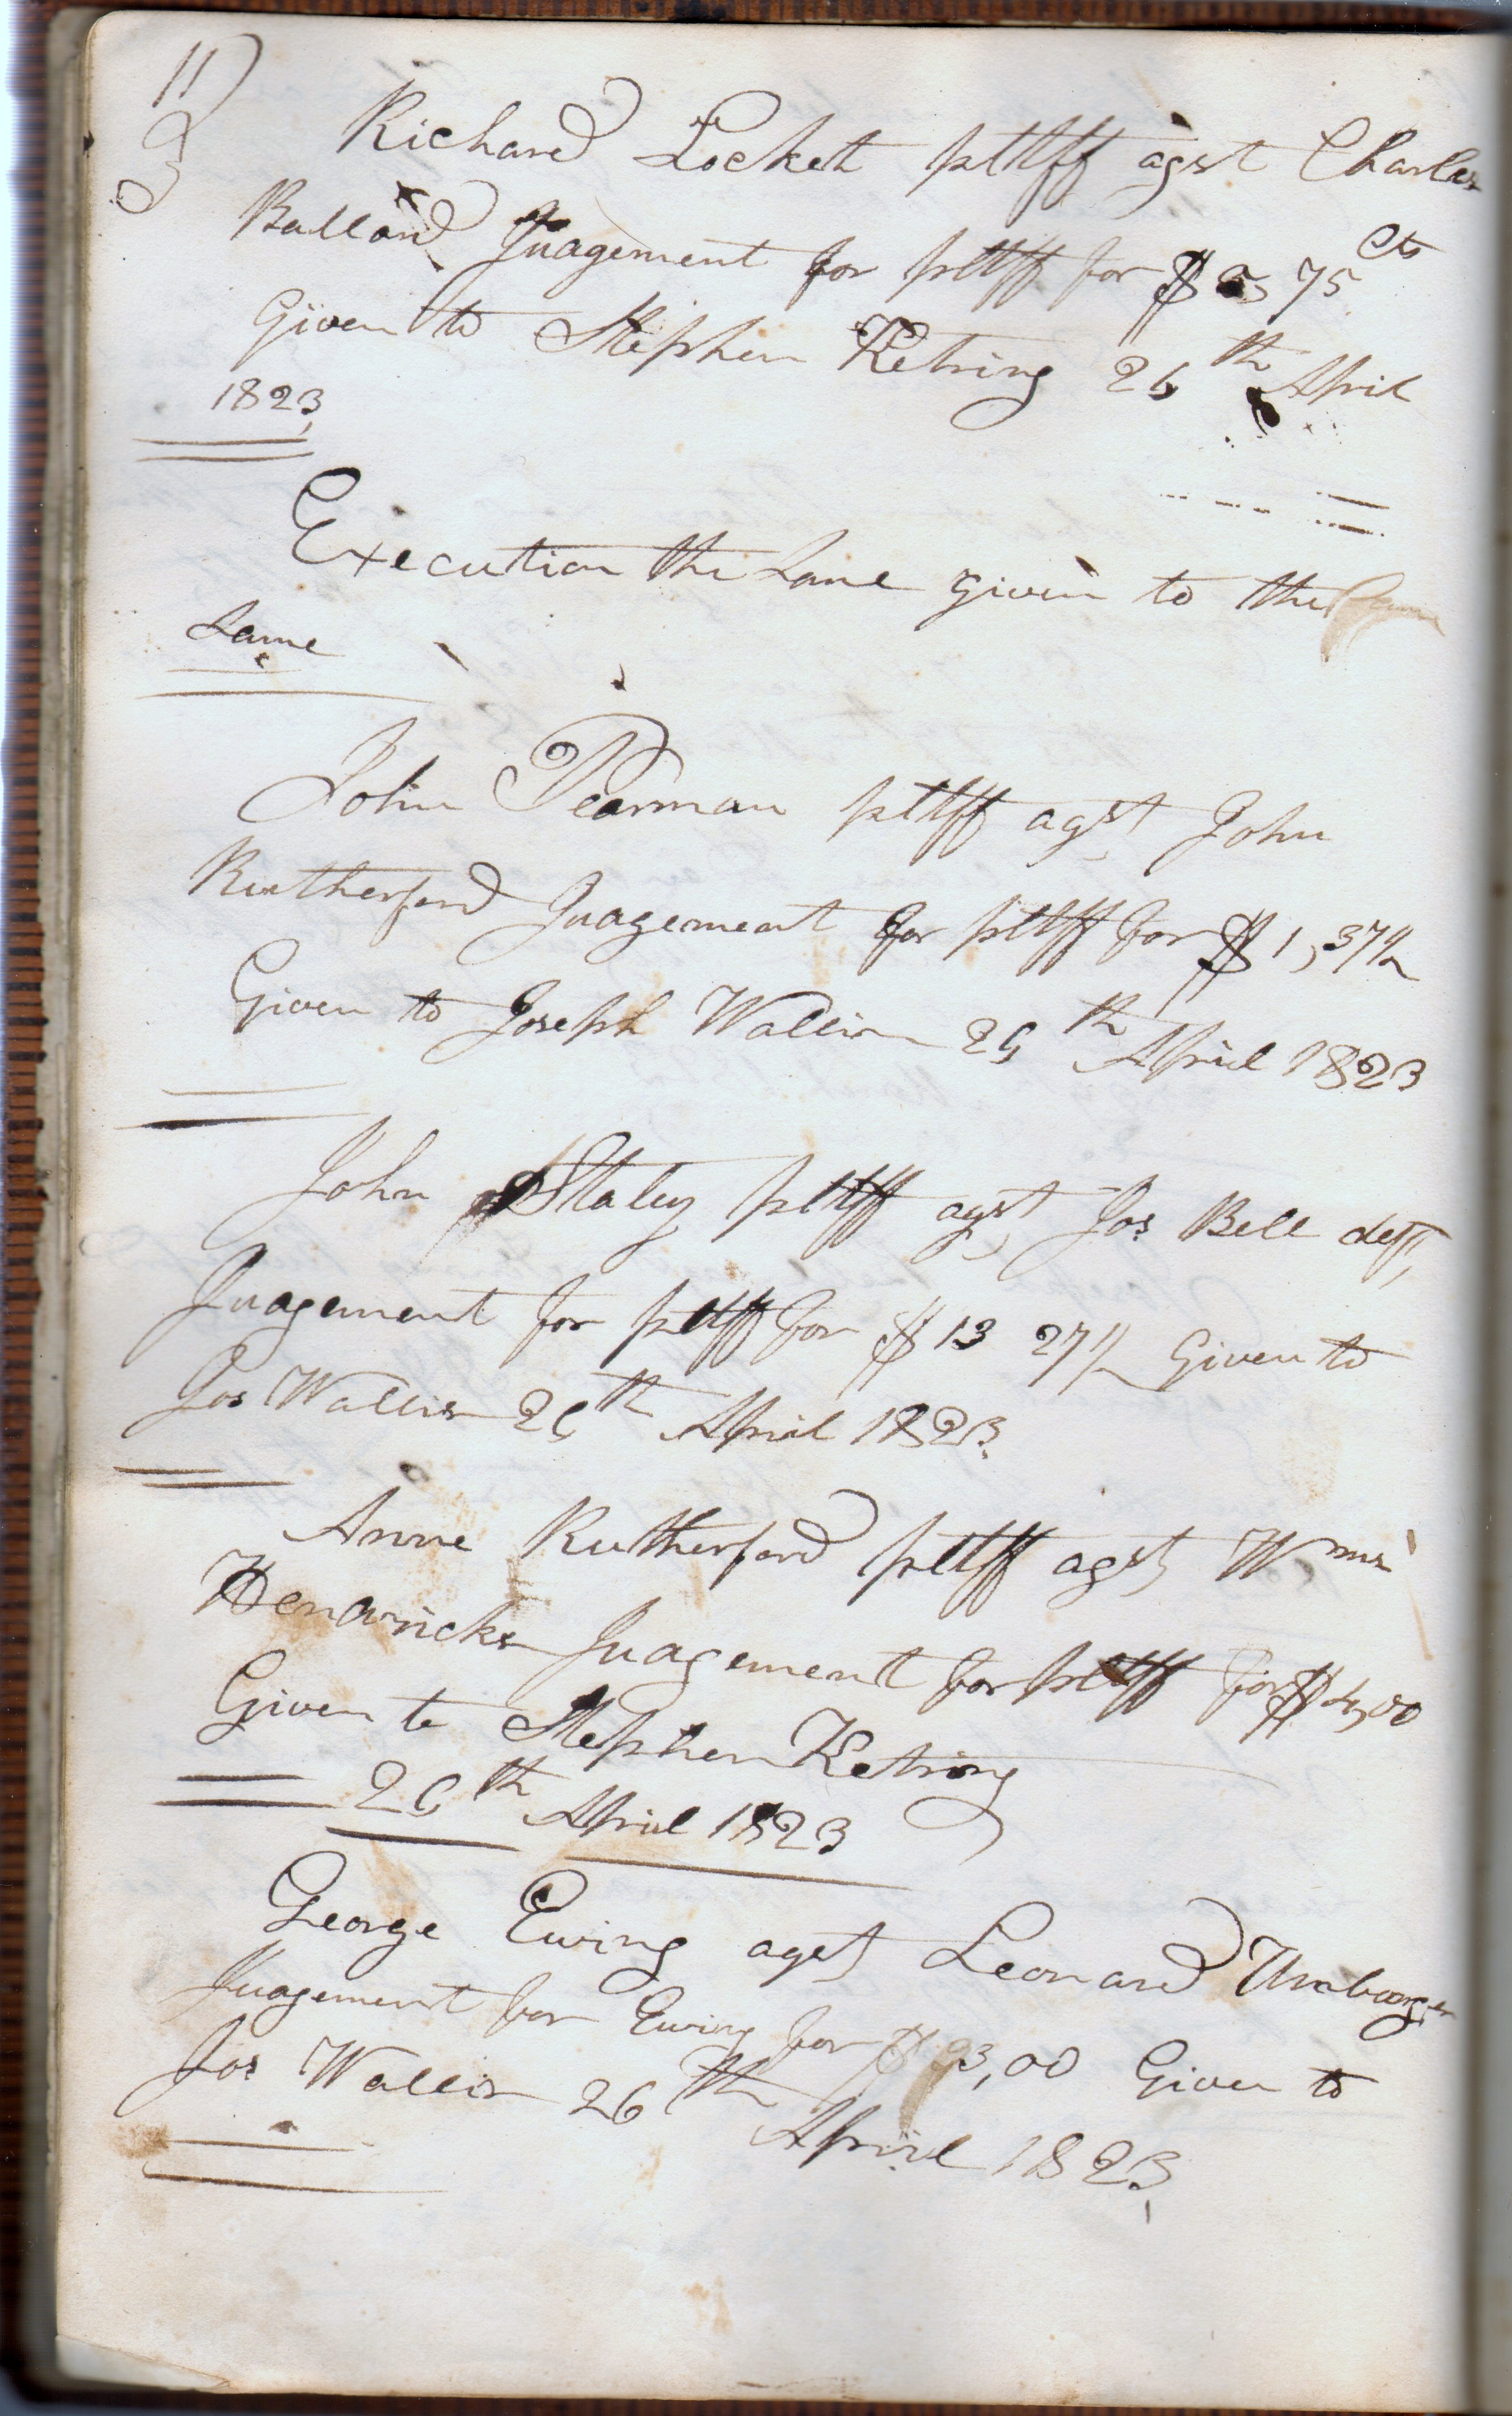 11
Richard Locket pltff agst Charles
Ballard Judgement for pltff for $ 75 Cts
Given to Stephen Ketring 26th April
1823,
Execution the Same given to the
Same
John Pearman pltff agst John
Rutherford Judgement for pltff for $1,37½
Given to Joseph Wallis 26th April 1823
John Staley pltff agst Jos Bell deft,
Judgement for pltff for $13 27½ Given to
Jos Wallis 26th April 1823.
Anne Rutherford pltff agst Wms
Hendricks Judgement for pltff for $4,00
Given to Stephen Ketring
26th April 1823
George Ewing agst Leonard Umbarger
Judgement for Ewing for $93,00 Given to
Jos Wallis 26th April 1823,